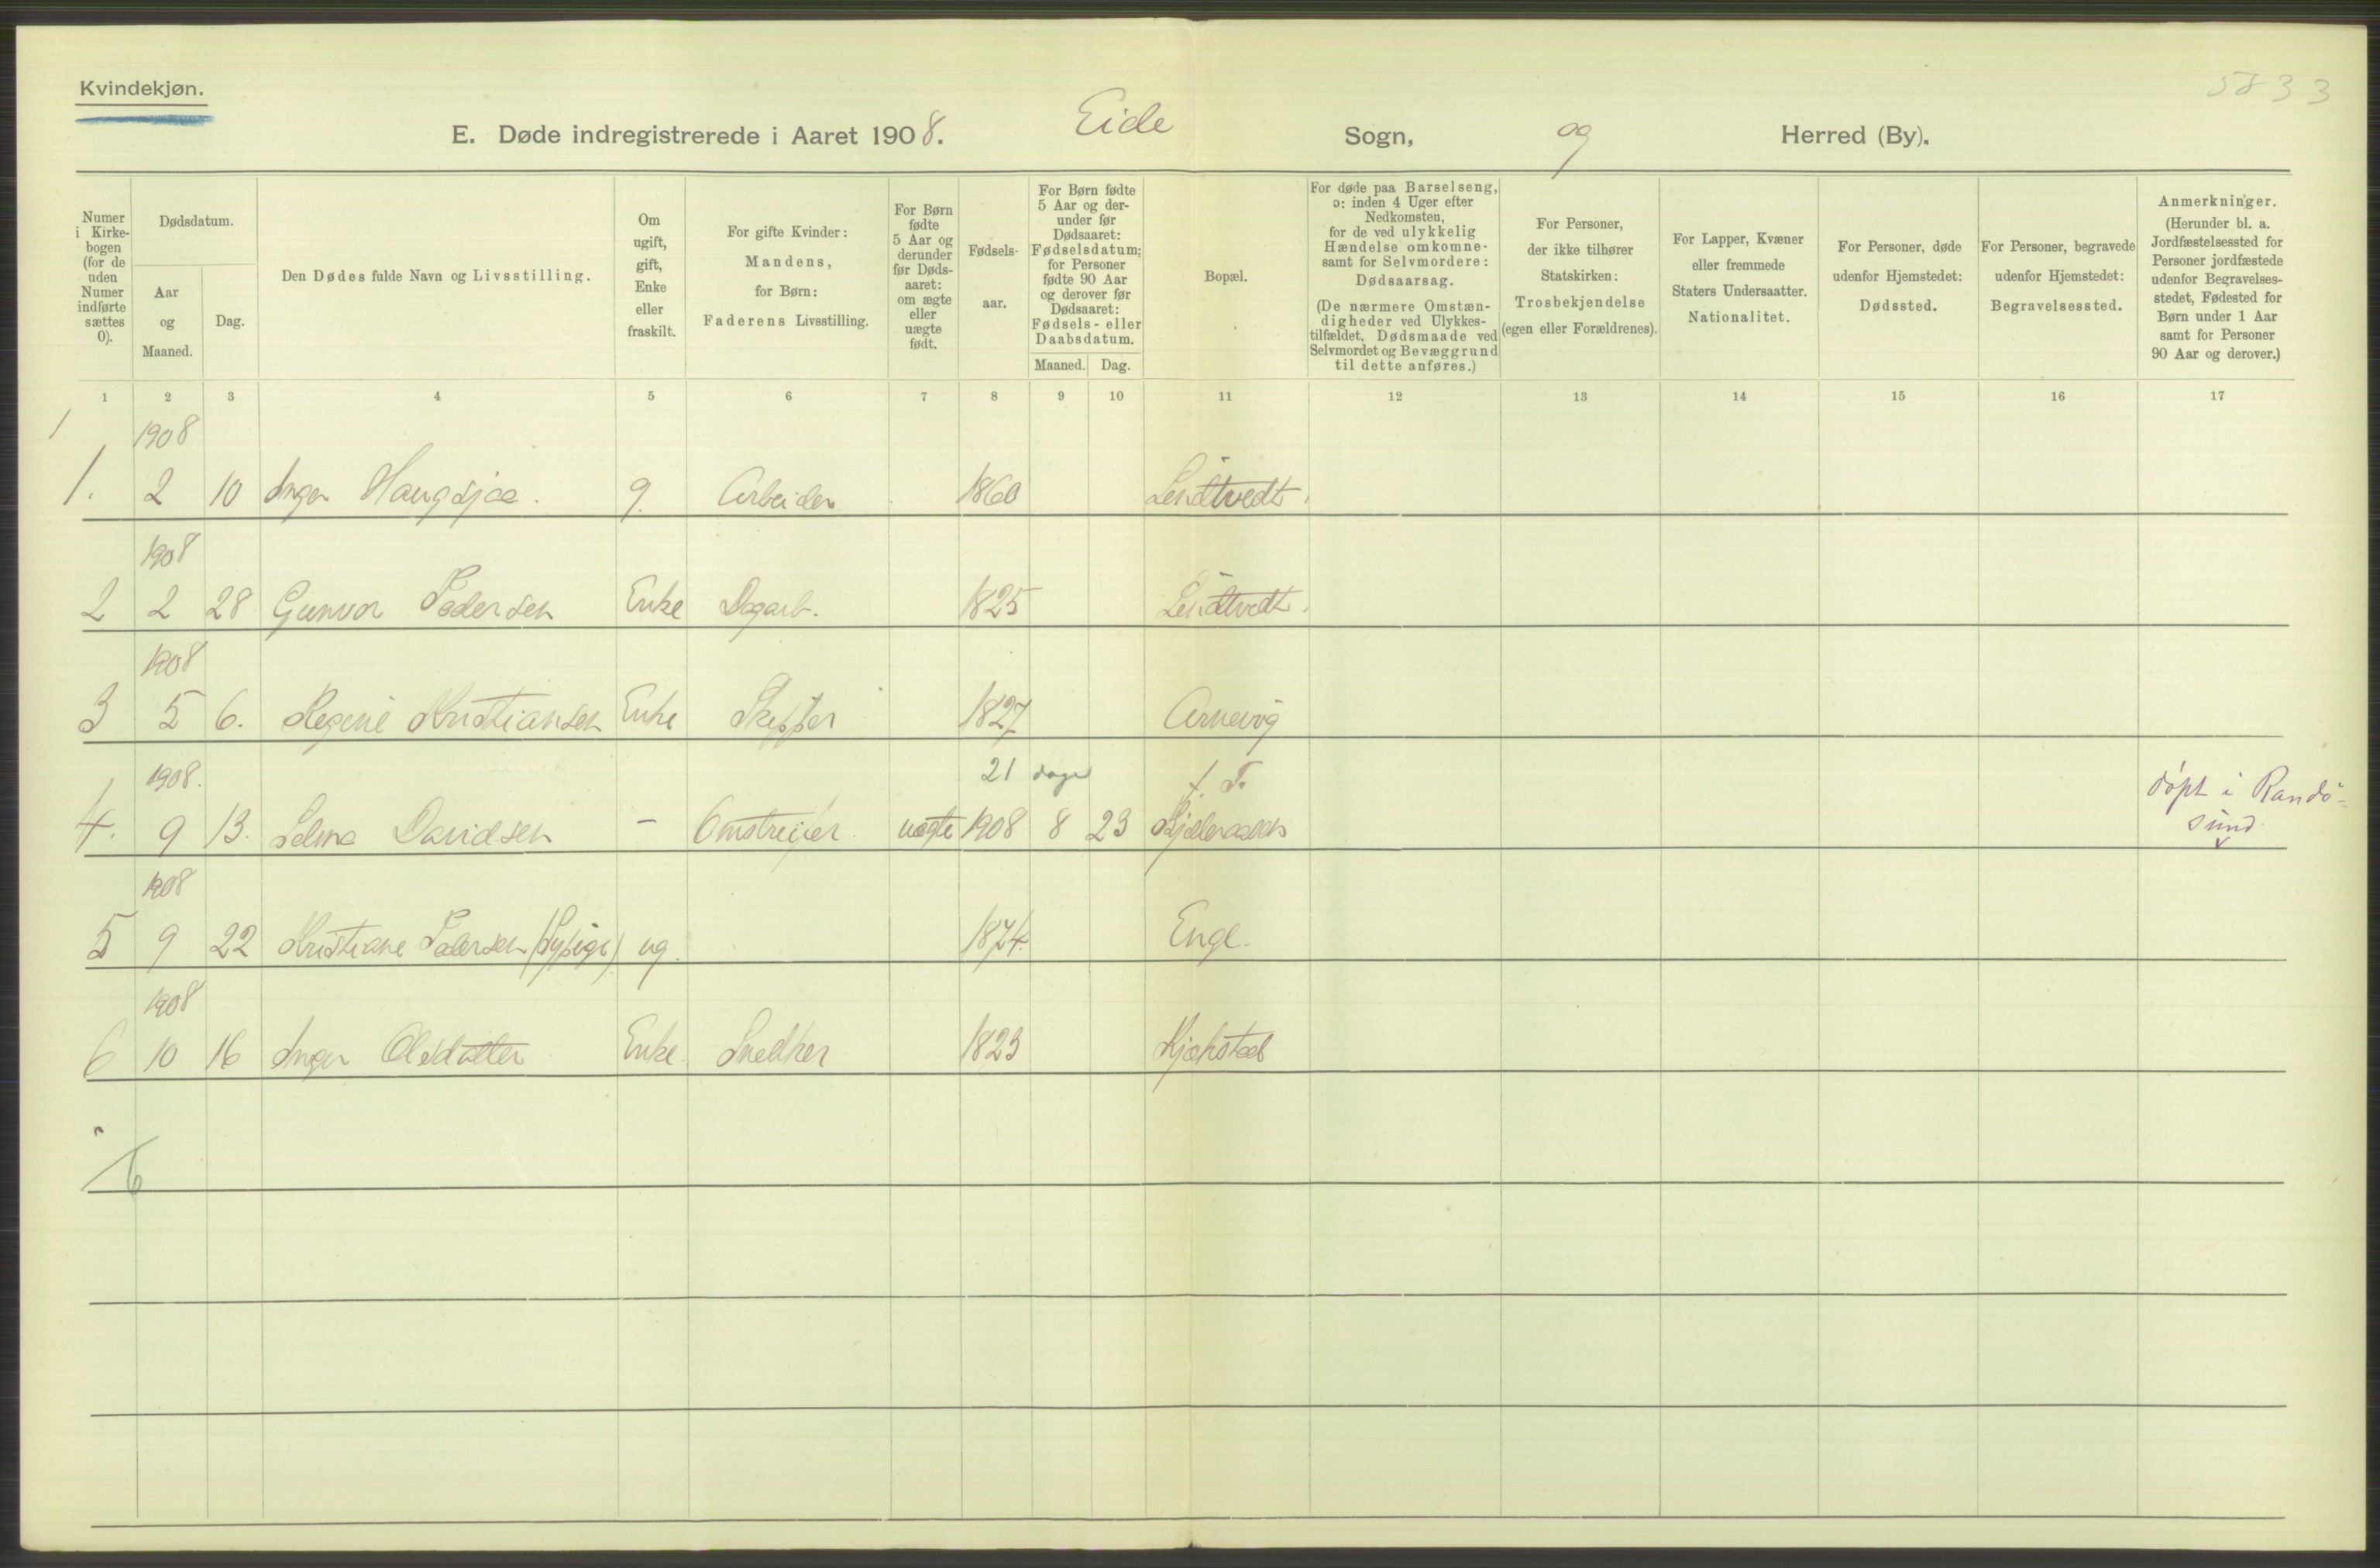 Kvindekjøn.
5833
E. Døde indregistrerede i Aaret 1908. Eide Sogn, og Herred (By).
Numer i Kirkebogen (for de uden Numer indførte sættes 0).
Dødsdatum.
Aar og Maaned.
Dag.
Den Dødes fulde Navn og Livsstilling.
Om ugift, gift, Enke eller fraskilt.
For gifte Kvinder: Mandens, for Børn: Faderens Livsstilling.
For Børn fødte 5 Aar og derunder før Dødsaaret: om ægte eller uægte født.
Fødselsaar.
For Børn fødte 5 Aar og derunder før Dødsaaret: Fødselsdatum; for Personer fødte 90 Aar og derover før Dødsaaret: Fødsels- eller Daabsdatum.
Maaned. Dag.
Bopæl.
For døde paa Barselseng, ɔ: inden 4 Uger efter Nedkomsten, for de ved ulykkelig Hændelse omkomne samt for Selvmordere: Dødsaarsag. (De nærmere Omstændigheder ved Ulykkestilfældet, Dødsmaade ved Selvmordet og Bevæggrund til dette anføres.)
For Personer, der ikke tilhører Statskirken: Trosbekjendelse (egen eller Forældrenes).
For Lapper, Kvæner eller fremmede Staters Undersaatter. Nationalitet.
For Personer, døde udenfor Hjemstedet: Dødssted.
For Personer, begravede udenfor Hjemstedet: Begravelsessted.
Anmerkninger. (Herunder bl. a. Jordfæstelsessted for Personer jordfæstede udenfor Begravelsesstedet, Fødested for Børn under 1 Aar samt for Personer 90 Aar og derover.)
1 2 3 4 5 6 7 8 9 10 11 12 13 14 15 16 17
1 1908
1. 2 10 Inger Haugsjaa. g. Arbeider 1860 Lendtvedt.
1908
2 2 28 Gunvor Pedersen Enke Dagarb. 1825 Lendtvedt.
1908
3 5 6. Regine Kristiansen Enke Skipper 1827 Arnevig
1908. 21 dage f. T.
4. 9 13. Selma Davidsen - Omstreifer. uægte 1908 8 23 døpt i Randö-
sund
1908
5 9 22 Kristiane Pedersen (Sypige) ug. 1874. Enge.
1908
6 10 16 Inger Olsdatter Enke. Snedker 1823
6